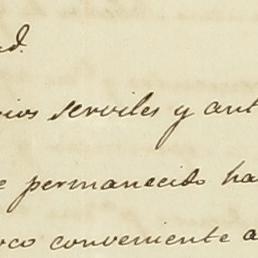 ud.
rios serviles y ant
e permanecido ha
oco conveniente a